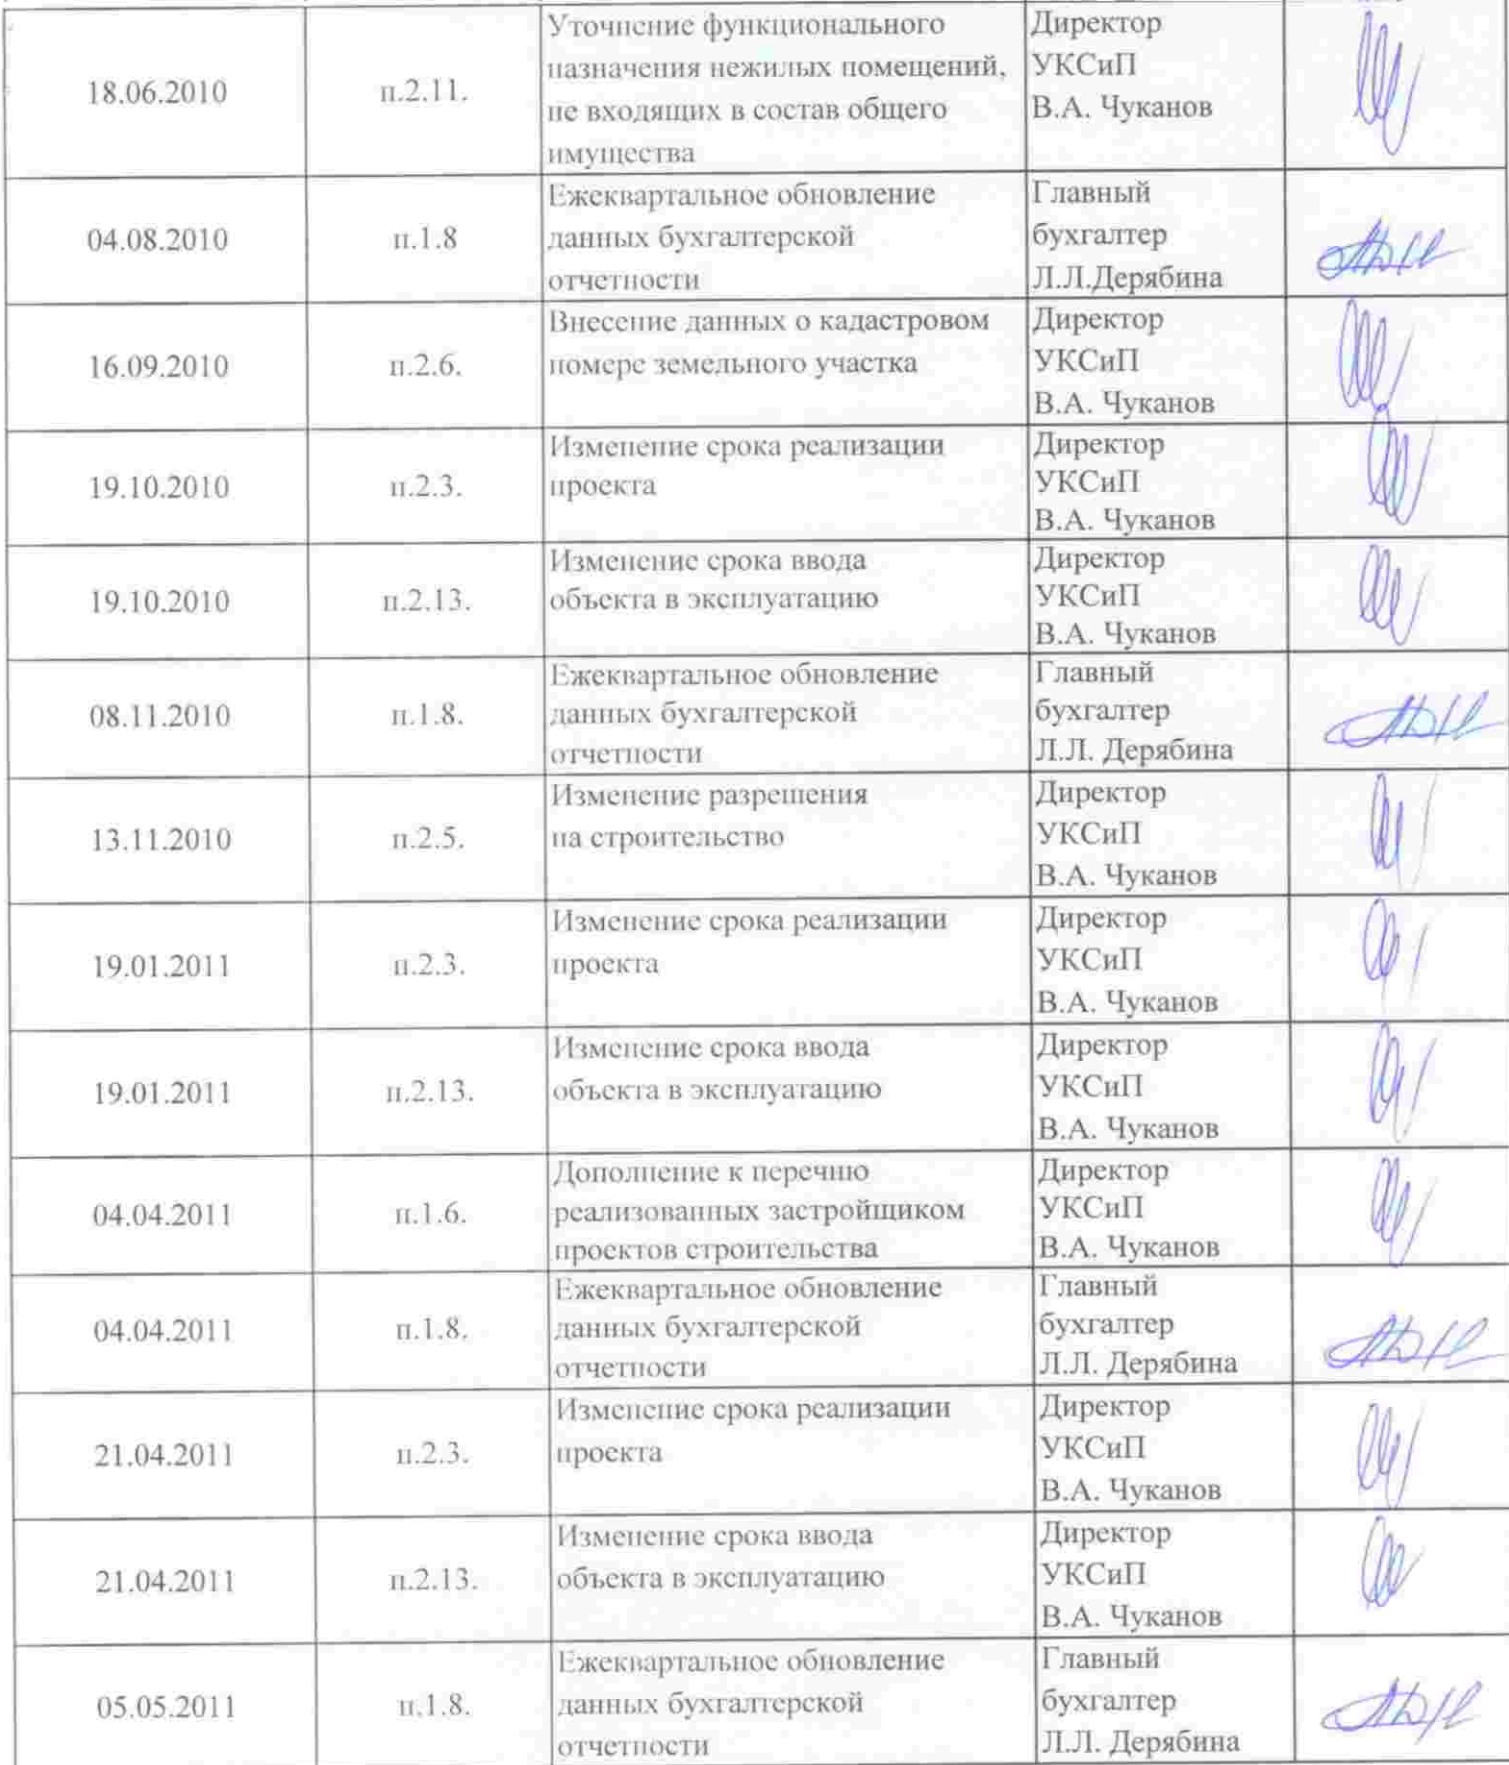 18.06.2010
п.2.11.
Уточнение функционального
назначения нежилых помещений,
не входящих в состав общего
имущества
Директор
УКСиП
В.А. Чуканов
04.08.2010
п.1.8
Ежеквартальное обновление
данных бухгалтерской
отчетности
Главный
бухгалтер
Л.Л.Дерябина
16.09.2010
п.2.6.
Внесение данных о кадастровом
номере земельного участка
Директор
УКСиП
В.А. Чуканов
19.10.2010
п.2.3.
Изменение срока реализации
проекта
Директор
УКСиП
В.А. Чуканов
19.10.2010
п.2.13.
Изменение срока ввода
объекта в эксплуатацию
Директор
УКСиП
В.А. Чуканов
08.11.2010
п.1.8.
Ежеквартальное обновление
данных бухгалтерской
отчетности
Главный
бухгалтер
Л.Л. Дерябина
13.11.2010
п.2.5.
Изменение разрешения
на строительство
Директор
УКСиП
В.А. Чуканов
19.01.2011
п.2.3.
Изменение срока реализации
проекта
Директор
УКСиП
В.А. Чуканов
19.01.2011
п.2.13.
Изменение срока ввода
объекта в эксплуатацию
Директор
УКСиП
В.А. Чуканов
04.04.2011
п.1.6.
Дополнение к перечню
реализованных застройщиком
проектов строительства
Директор
УКСиП
В.А. Чуканов
04.04.2011
п.1.8.
Ежеквартальное обновление
данных бухгалтерской
отчетности
Главный
бухгалтер
Л.Л. Дерябина
21.04.2011
п.2.3.
Изменение срока реализации
проекта
Директор
УКСиП
В.А. Чуканов
21.04.2011
п.2.13.
Изменение срока ввода
объекта в эксплуатацию
Директор
УКСиП
В.А. Чуканов
05.05.2011
п.1.8.
Ежеквартальное обновление
данных бухгалтерской
отчетности
Главный
бухгалтер
Л.Л. Дерябина